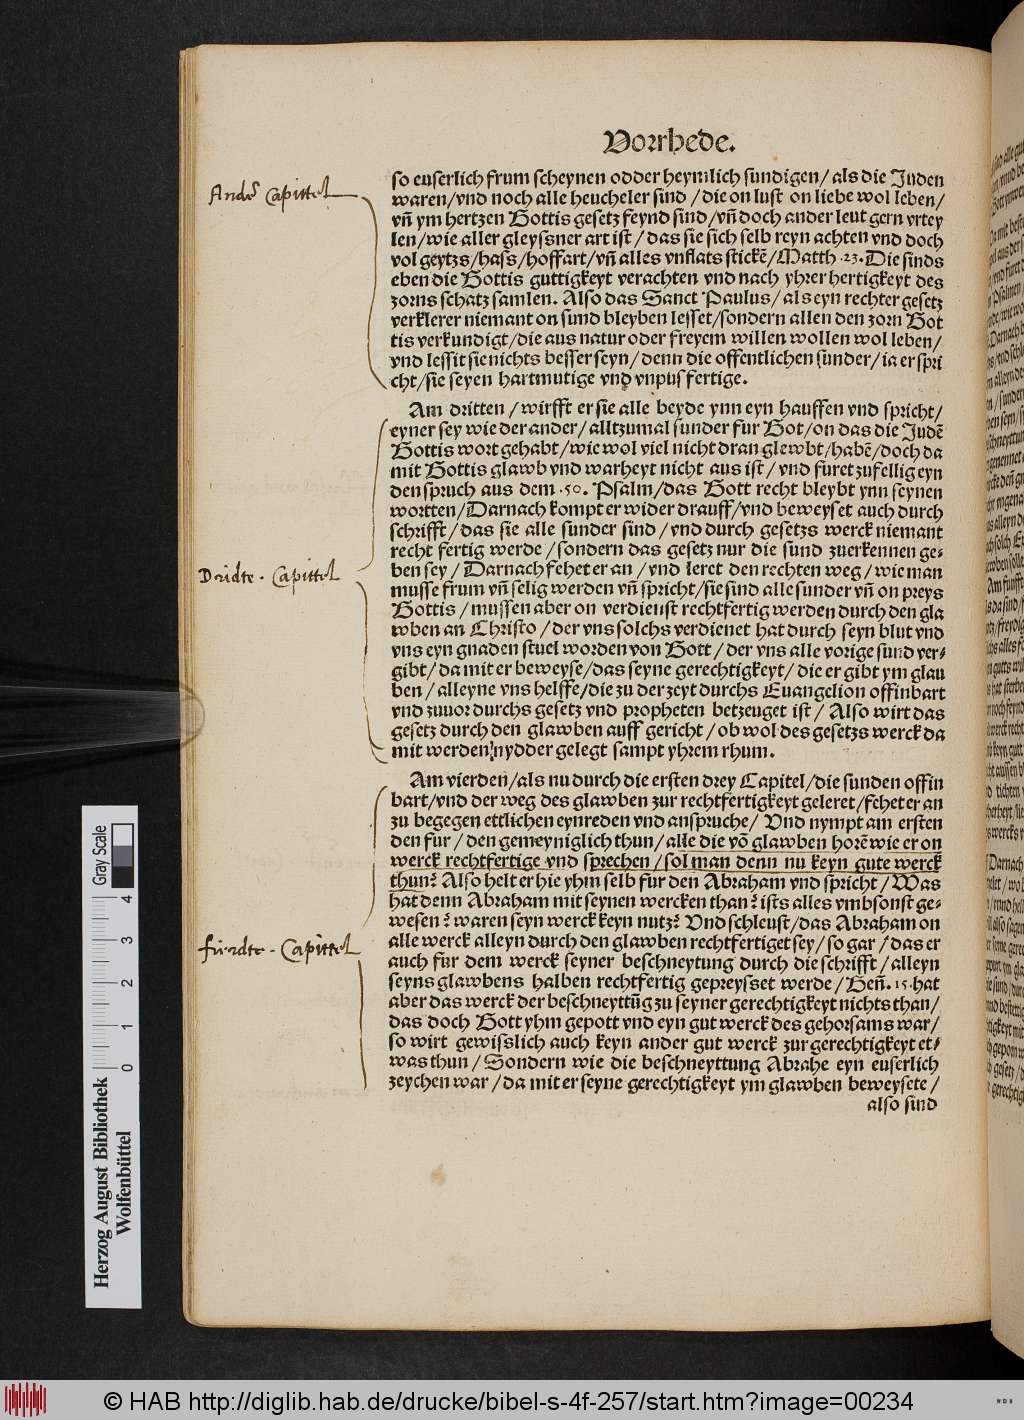 Vorrhede.
Ander Capittel
so euserlich frum scheynen odder heymlich sundigen/ als die Juden
waren/vnd noch alle heucheler sind/die on lust on liebe wol leben/
vn̄ ym hertzen Gottis gesetz feynd sind/vn̄ doch ander leut gern vrtey
len/wie aller gleyssner art ist/das sie sich selb reyn achten vnd doch
vol geytzs/hass/hoffart/vn̄ alles vnflats stickē/Matth .23. Die sinds
eben die Gottis guttigkeyt verachten vnd nach yhrer hertigkeyt des
zorns schatz samlen. Also das Sanct Paulus/ als eyn rechter gesetz
verklerer niemant on sund bleyben lesset/sondern allen den zorn Got
tis verkundigt/die aus natur oder freyem willen wollen wol leben/
vnd lessit sie nichts besser seyn/denn die offentlichen sunder/ia er spri
cht/sie seyen hartmutige vnd vnpusfertige.
Am dritten/wirfft er sie alle beyde ynn eyn hauffen vnd spricht/
eyner sey wie der ander/alltzumal sunder fur Got/on das die Judē
Gottis wort gehabt/wie wol viel nicht dran glewbt/habē/doch da
mit Gottis glawb vnd warheyt nicht aus ist/vnd furet zufellig eyn
den spruch aus dem .50. Psalm/das Gott recht bleybt ynn seynen
wortten/Darnach kompt er wider drauff/vnd beweyset auch durch
schrifft/das sie alle sunder sind/vnd durch gesetzs werck niemant
recht fertig werde/sondern das gesetz nur die sund zuerkennen ge-
Dridte . Capittel
ben sey/Darnach fehet er an/vnd leret den rechten weg/wie man
musse frum vn̄ selig werden vn̄ spricht/sie sind alle sunder vn̄ on preys
Gottis/mussen aber on verdienst rechtfertig werden durch den gla
wben an Christo/der vns solchs verdienet hat durch seyn blut vnd
vns eyn gnaden stuel worden von Gott/der vns alle vorige sund ver-
gibt/da mit er beweyse/das seyne gerechtigkeyt/die er gibt ym glau
ben/alleyne vns helffe/die zu der zeyt durchs Euangelion offinbart
vnd zuuor durchs gesetz vnd propheten betzeuget ist/Also wirt das
gesetz durch den glawben auff gericht/ob wol des gesetzs werck da
mit werden nydder gelegt sampt yhrem rhum.
Am vierden/als nu durch die ersten drey Capitel/die sunden offin
bart/vnd der weg des glawben zur rechtfertigkeyt geleret/fehet er an
zu begegen ettlichen eynreden vnd anspruche/ Vnd nympt am ersten
den fur/den gemeyniglich thun/alle die vō glawben horē wie er on
werck rechtfertige vnd sprechen/sol man denn nu keyn gute werck
thun? Also helt er hie yhm selb fur den Abraham vnd spricht/Was
hat denn Abraham mit seynen wercken than? ists alles vmbsonst ge-
wesen? waren seyn werck keyn nutz? Vnd schleust/das Abraham on
Fürdte . Capittel
alle werck alleyn durch den glawben rechtfertiget sey/so gar/das er
auch fur dem werck seyner beschneytung durch die schrifft/alleyn
seyns glawbens halben rechtfertig gepreysset werde/Gen̄. 15. hat
aber das werck der beschneyttūg zu seyner gerechtigkeyt nichts than/
das doch Gott yhm gepott vnd eyn gut werck des gehorsams war/
so wirt gewisslich auch keyn ander gut werck zur gerechtigkeyt et-
was thun/Sondern wie die beschneyttung Abrahe eyn euserlich
zeychen war/da mit er seyne gerechtigkeyt ym glawben beweysete/
also sind
Herzog August Bibliothek
Wolfenbüttel
Gray Scale
0 1 2 3 4
© HAB http://diglib.hab.de/drucke/bibel-s-4f-257/start.htm?image=00234